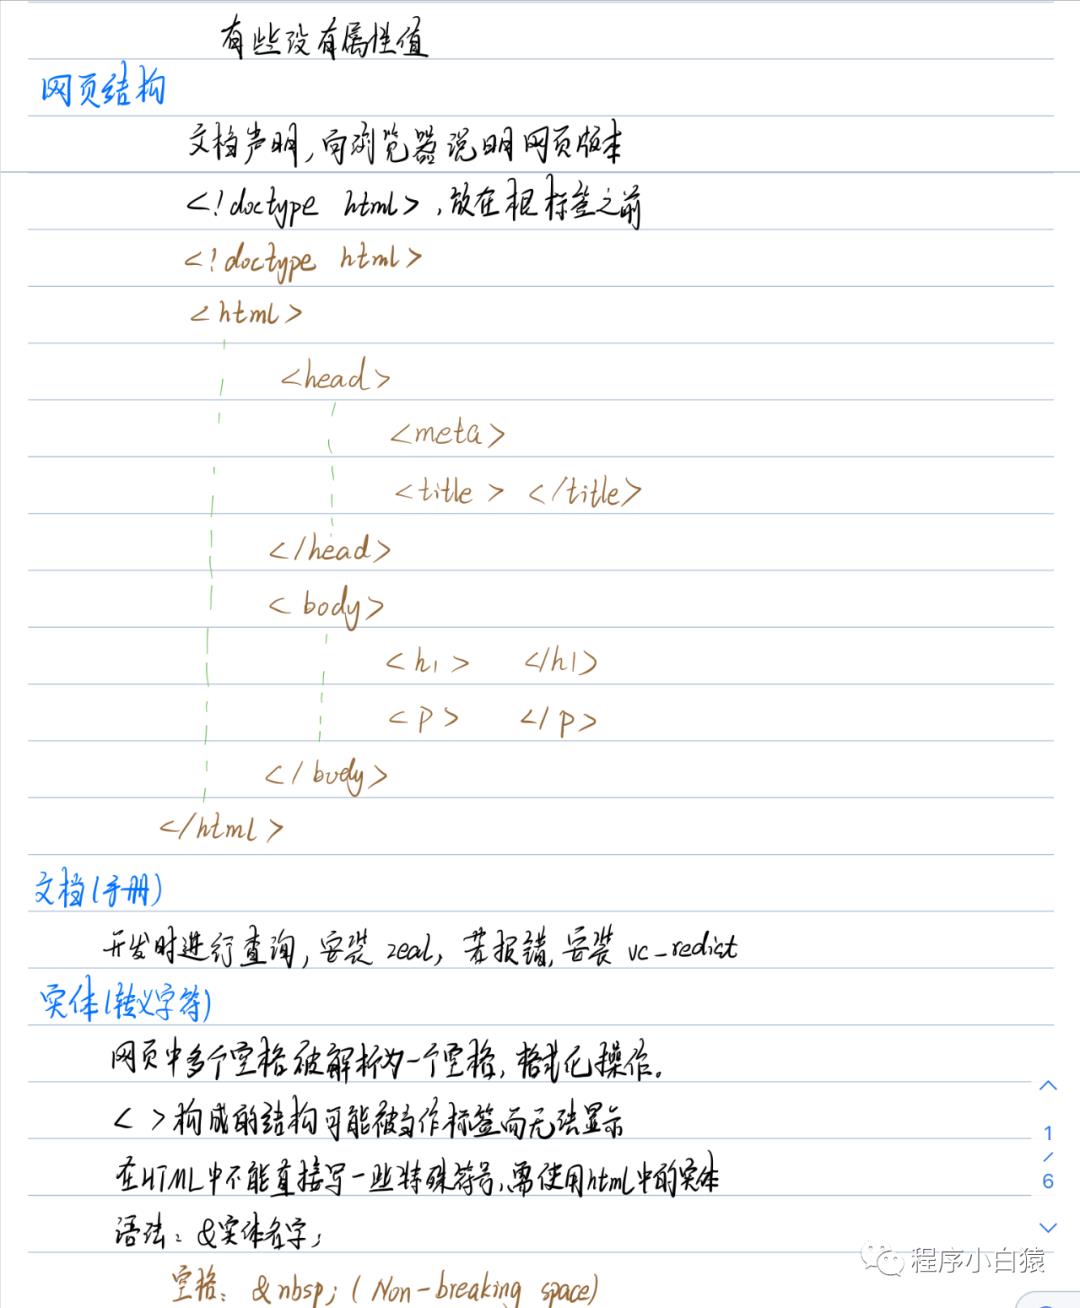 有些没有属性值
网页结构
文档声明,向浏览器说明网页版本
<!doctype html>,放在根标签之前
<!doctype html>
<html>
<head>
<meta>
<title> </title>
</head>
<body>
<h1> </h1>
<p> </p>
</body>
</html>
文档(手册)
开发时进行查询,安装 zeal, 若报错,安装 vc_redict
实体(转义字符)
网页中多个空格被解析为一个空格,格式化操作。
< >构成的结构可能被当作标签而无法显示
在HTML中不能直接写一些特殊符号,需使用html中的实体
语法: &实体名字;
空格: &nbsp; (Non-breaking space)
1
/
6
程序小白猿